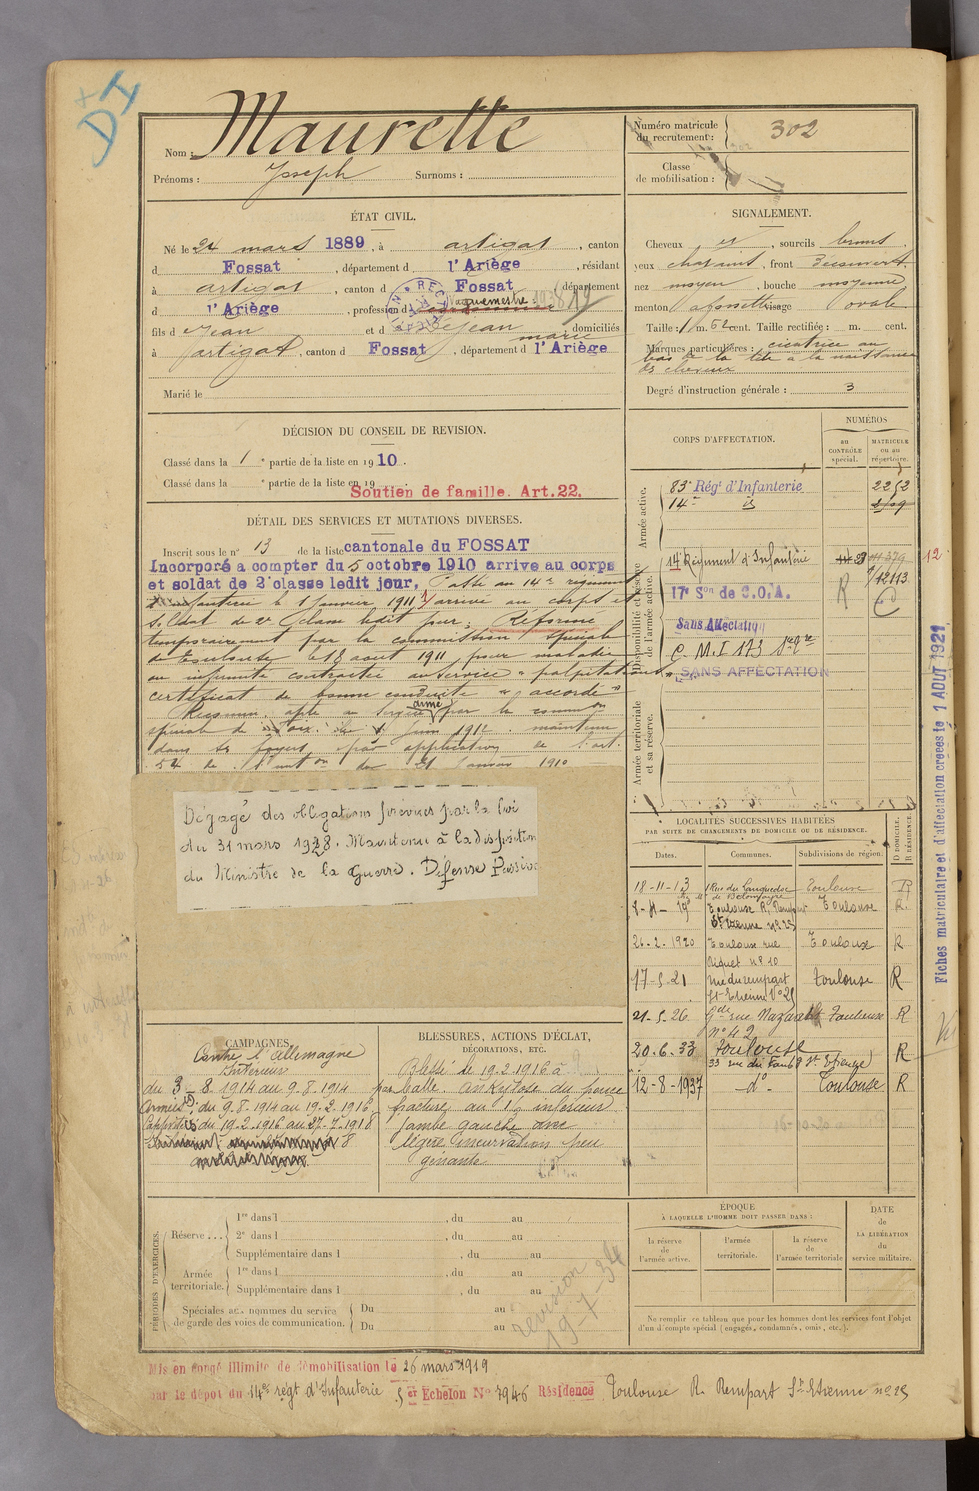 DI
Nom : Maurette
Prénoms : Joseph Surnoms :
Numéro matricule du recrutement : 302
Classe de mobilisation :
ÉTAT CIVIL.
Né le 24 mars 1889, à artigat, canton
d Fossat, département d l'Ariège, résidant
à artigat, canton d Fossat, département
d l'Ariège, profession d
fils d Jean et d Jean marie domiciliés
à artigat, canton d Fossat, département d l'Ariège
Marié le
SIGNALEMENT.
Cheveux et, sourcils bruns,
yeux chatains, front Découvert,
nez moyen, bouche moyenne
menton à fossette visage ovale
Taille : 1 m. 62 cent. Taille rectifiée : m. cent.
Marques particulières : cicatrice au
bas de la tête à la naissance
des cheveux
Degré d'instruction générale : 3
DÉCISION DU CONSEIL DE REVISION.
Classé dans la 1e partie de la liste en 1910.
Classé dans la e partie de la liste en 19
Soutien de famille. Art. 22.
DÉTAIL DES SERVICES ET MUTATIONS DIVERSES.
Inscrit sous le n° 13 de la liste cantonale du FOSSAT
Incorporé a compter du 5 octobre 1910 arrive au corps
et soldat de 2e classe ledit jour. Passé au 14e régiment
d'infanterie le 1 Janvier 1911, arrivé au corps et
soldat de 2e classe ledit jour. Réformé
temporairement par la commission spéciale
de Toulouse le 18 aout 1911 pour maladie
ou infirmité contractée au service "palpitations"
certificat de bonne conduite "accordé"
Reconnu apte au service armé par la common
spéciale de Foix le Juin 1912 maintenu
dans ses foyers par application de l'art.
54 de l'inston du 21 Janvier 1910
Dégagé des obligations prévues par la loi
du 31 mars 1928. Maintenu à la disposition
du Ministre de la Guerre. Défense Passive
CORPS D'AFFECTATION.
NUMÉROS
au CONTRÔLE spécial.
MATRICULE ou au répertoire.
Armée active.
83e Régt d'Infanterie 2252
14e id
Disponibilité et réserve de l'armée active.
14 Régiment d'Infanterie
12113
17e Son de C.O.A.
Sans Affectation
C. M. I 173
SANS AFFECTATION
Armée territoriale et sa réserve.
LOCALITÉS SUCCESSIVES HABITÉES
PAR SUITE DE CHANGEMENTS DE DOMICILE OU DE RÉSIDENCE.
Dates. Communes. Subdivisions de région. D DOMICILE. R RÉSIDENCE.
18-11-13 Rue du Languedoc Toulouse R
Toulouse R. Rempart Toulouse R.
St Etienne n° 25
26-2-1920 Toulouse rue Toulouse R
Riquet n° 10
17-5-21 rue du rempart Toulouse R
St-Etienne N° 25
21-5-26 Gde rue Nazareth Toulouse R
N° 42
20-6-33 Toulouse R
33 rue du Faubg St Etienne
12-8-1937 -do- Toulouse R
Fiches matriculaire et d'affectation créées le 1 AOUT 1921
CAMPAGNES.
Contre l'allemagne
Intérieur
du 3-8-1914 au 9.8.1914
Armées : du 9-8-1914 au 19-2-1916
du 19-2-1916 au 27-7-1918
BLESSURES, ACTIONS D'ÉCLAT,
DÉCORATIONS, ETC.
Blessé de 19-2-1916 à
par balle. ankylose du pouce
fracture au 1/3 inférieur
Jambe gauche avec
légère incurvation peu
gênante
PÉRIODES D'EXERCICES.
Réserve ...
1re dans l , du au
2e dans l , du au
Supplémentaire dans l , du au
Armée territoriale.
1re dans l , du au
Supplémentaire dans l , du au
Spéciales aux hommes du service de garde des voies de communication.
Du au
Du au
revision
19-7-34
ÉPOQUE
À LAQUELLE L'HOMME DOIT PASSER DANS :
la réserve de l'armée active.
l'armée territoriale.
la réserve de l'armée territoriale
DATE de LA LIBÉRATION du service militaire.
Ne remplir ce tableau que pour les hommes dont les services font l'objet
d'un décompte spécial (engagés, condamnés, omis, etc.).
Mis en congé illimité de démobilisation le 26 mars 1919
par le dépôt du 14e régt d'Infanterie 5er Echelon N° 7946 Résidence Toulouse R. Rempart St-Etienne no 25